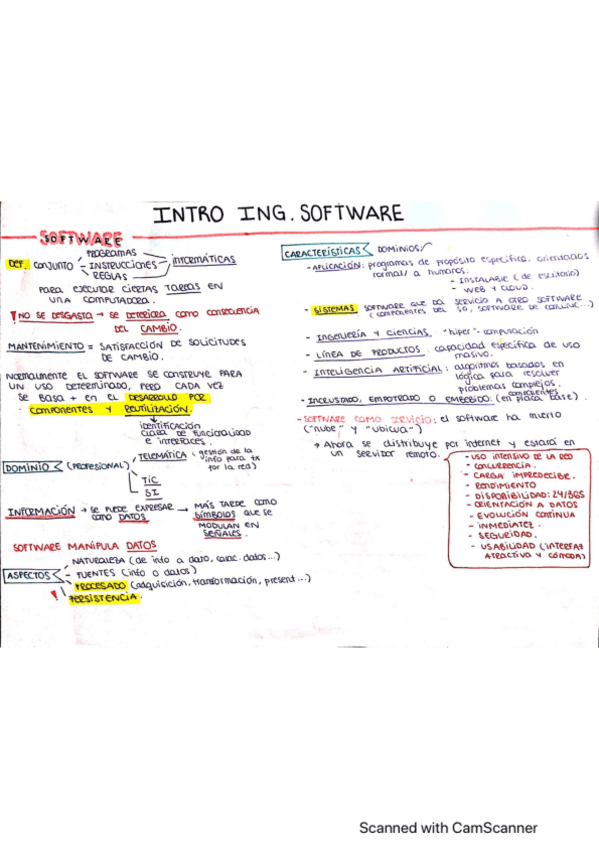 INTRO ING. SOFTWARE
SOFTWARE
DEF. CONJUNTO
PROGRAMAS
- INSTRUCCIONES
REGLAS
INFORMÁTICAS
PARA EJECUTAR CIERTAS TAREAS EN
UNA COMPUTADORA.
! NO SE DESGASTA → SE DETERIORA COMO CONSECUENCIA
DEL CAMBIO.
MANTENIMIENTO = SATISFACCIÓN DE SOLICITUDES
DE CAMBIO.
NORMALMENTE EL SOFTWARE SE CONSTRUYE PARA
UN USO DETERMINADO, PERO CADA VEZ
SE BASA + EN EL DESARROLLO POR
COMPONENTES Y REUTILIZACIÓN.
identificación
clara de funcionalidad
e interfaces.
DOMINIO (PROFESIONAL)
TELEMÁTICA : gestión de la
info para tx
por la red)
TIC
SI
INFORMACIÓN → SE PUEDE EXPRESAR
COMO DATOS
→ MÁS TARDE COMO
SÍMBOLOS QUE SE
MODULAN EN
SEÑALES.
SOFTWARE MANIPULA DATOS
ASPECTOS
NATURALEZA (de info a dato, carac. datos...)
- FUENTES (info o datos)
- PROCESADO (adquisición, transformación, present...)
! PERSISTENCIA.
CARACTERÍSTICAS
DOMINIOS
- APLICACIÓN: programas de propósito específico, orientados
normal/ a humanos.
- INSTALABLE (de escritorio)
- WEB Y CLOUD.
- SISTEMAS SOFTWARE QUE DA SERVICIO A OTRO SOFTWARE
(COMPONENTES DEL SO, SOFTWARE DE COMUNIC...)
- INGENIERÍA Y CIENCIAS. "hiper"-computación
- LÍNEA DE PRODUCTOS: capacidad específica de uso
masivo.
- INTELIGENCIA ARTIFICIAL: algoritmos basados en
lógica para resolver
problemas complejos.
- INCRUSTADO, EMPOTRADO O EMBEBIDO (en placa base).
componentes
- SOFTWARE COMO SERVICIO: el software ha muerto
("nube" y "ubicua")
→ Ahora se distribuye por internet y estará en
un servidor remoto.
- USO INTENSIVO DE LA RED
- CONCURRENCIA.
- CARGA IMPREDECIBLE.
- RENDIMIENTO
- DISPONIBILIDAD: 24/365
- ORIENTACIÓN A DATOS
- EVOLUCIÓN CONTINUA
- INMEDIATEZ.
- SEGURIDAD.
- USABILIDAD (INTERFAZ
ATRACTIVA Y CÓMODA)
Scanned with CamScanner